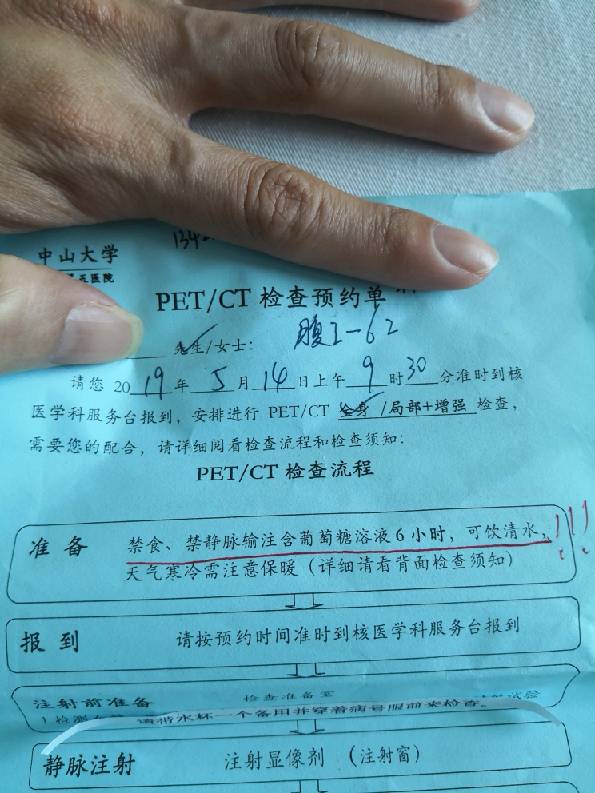 134
中山大学
五医院
PET/CT 检查预约单
先生/女士: 腹I-62
请您 2019 年 5 月 14 日上午 9 时 30 分准时到核
医学科服务台报到，安排进行 PET/CT 全身/局部+增强 检查，
需要您的配合，请详细阅看检查流程和检查须知:
PET/CT 检查流程
准备 禁食、禁静脉输注含葡萄糖溶液6小时，可饮清水， !!!
天气寒冷需注意保暖（详细请看背面检查须知）
报到 请按预约时间准时到核医学科服务台报到
注射前准备 检查准备室
请带水杯一个备用并穿着病号服前来检查。
静脉注射 注射显像剂 （注射窗）